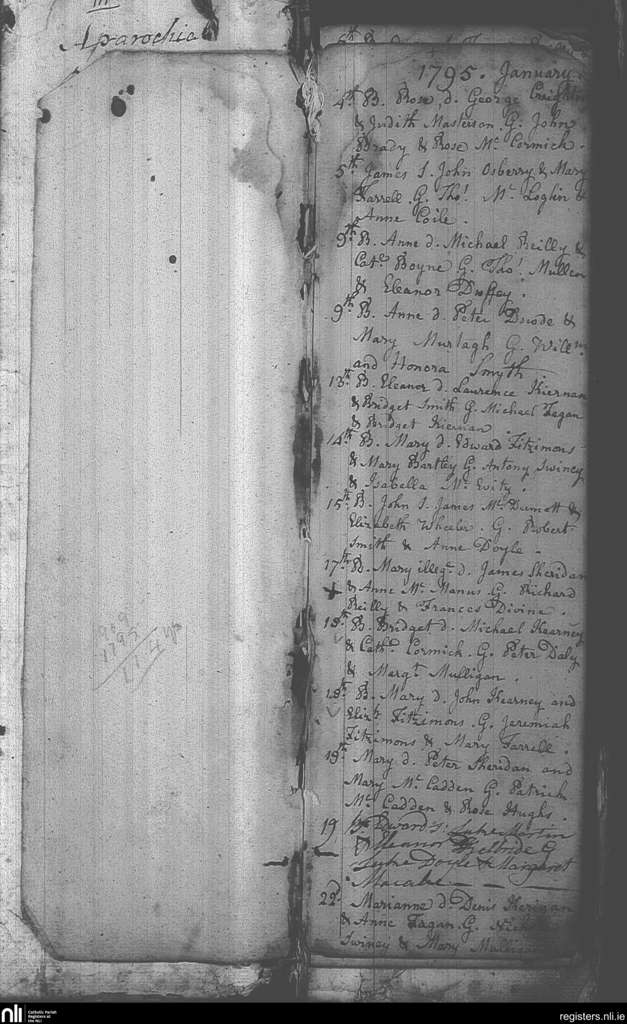 Aparochia
909
1795
114 yrs
1795. January.
4th B. Rose d. George Creighton
& Judith Masterson. G. John
Brady & Rose Mc Cormick.
5th James S. John Osberry & Mary
Farrell. G. Thos. Mc Loghlin &
Anne Coile.
9th B. Anne d. Michael Reilly &
Cath. Boyne G. Thos. Mullen
& Eleanor Duffey.
9th B. Anne d. Peter &
Mary Murtagh G. Willm
and Honora Smyth.
13th B. Eleanor d. Laurence Kiernan
& Bridget Smith G. Michael Fagan
& Bridget Kiernan.
14th B. Mary d. Edward Fitzimons
& Mary Bartley G. Antony Swiney
& Isabella Mc Evity.
15th B. John S. James Mc &
Elizabeth Wheeler. G. Robert
Smith & Anne Doyle.
17th B. Mary illeg. d. James Sheridan
& Anne Mc Manus G. Richard
Reilly & Frances Divine.
18th B. Bridget d. Michael Kearney
& Cath. Cormick. G. Peter Daly
& Margt. Mulligan.
18th B. Mary d. John Kearney and
Elizth Fitzimons. G. Jeremiah
Fitzimons & Mary Farrell.
19th Mary d. Peter Sheridan and
Mary Mc Cadden G. Patrick
Mc Cadden & Rose Hughs.
19 B. Edward S. Luke Martin
& Eleanor G
Luke Doyle & Margaret
Macabe
22d Marianne d. Denis Kerigan
& Anne Fagan. G.
Swiney & Mary Mulligan
nli Catholic Parish Registers at the NLI
registers.nli.ie